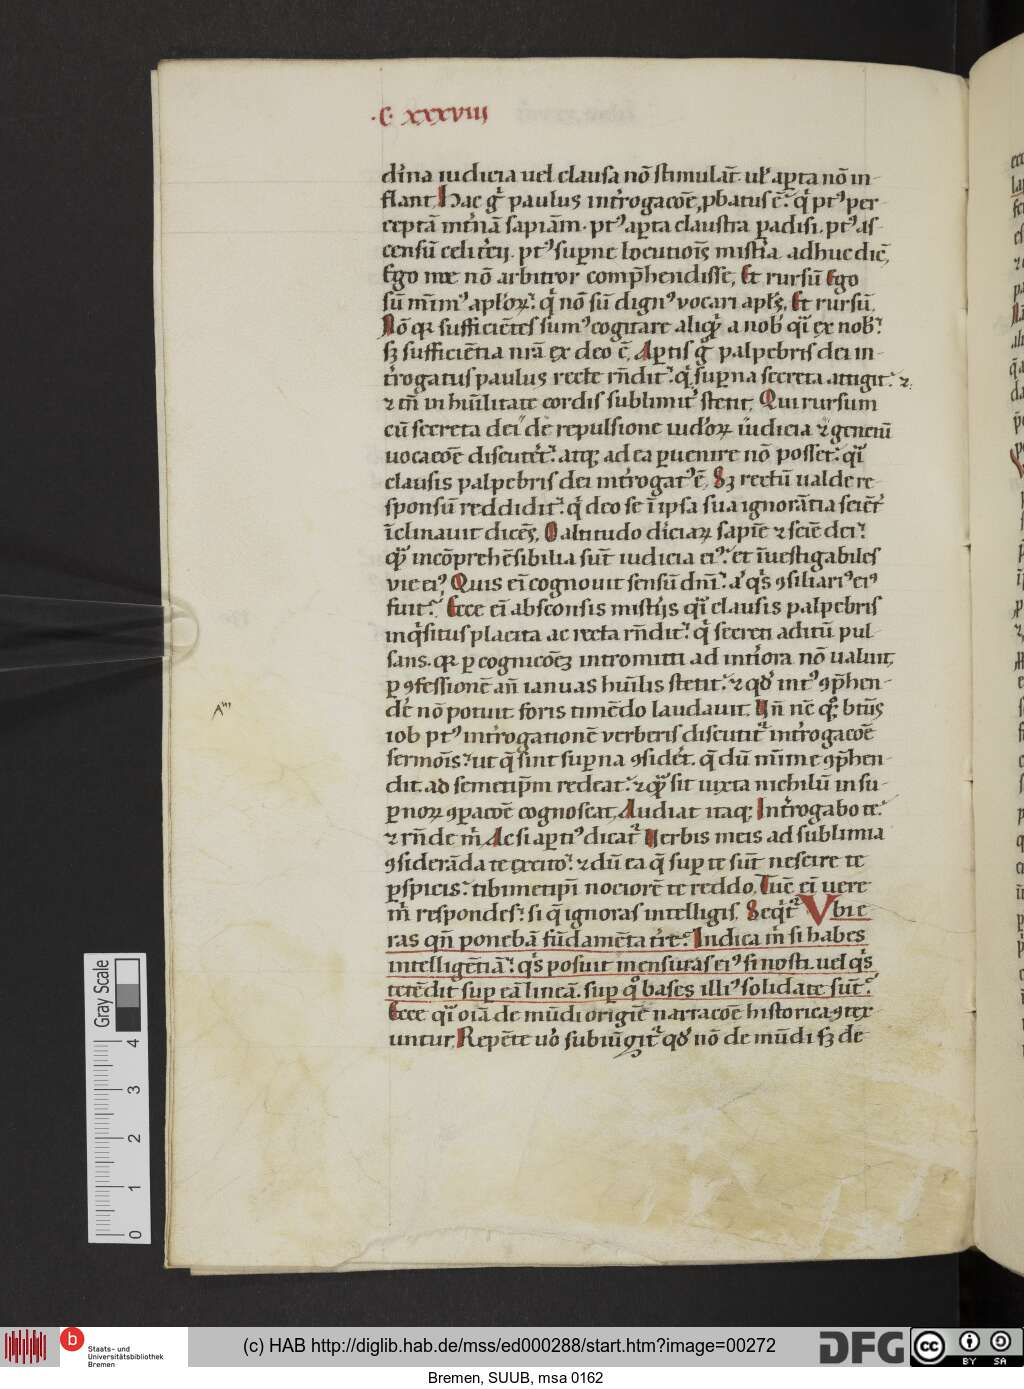 ·C· xxxviii
diuina iudicia uel clausa nō stimulāt. ul' aꝑta nō in-
flant. Hac g̊ paulus int'rogacōe, ꝓbatus ē: q̇ pt' per-
ceptā int'nā sapiām. pt' aꝑta claustra ꝑadisi. pt' as-
censū celi t'cij. pt' suꝑne locutiois mist'ia adhuc dic̄,
Ego me nō arbitror comp̄hendisse, Et rursū Ego
sū mīm' apl'oꝝ: q̇ nō sū dign' vocari apl's, Et rursū,
Nō qꝛ sufficiētes sum' cogitare aliqͥd a nob' qͣi ex nob':
sꝫ sufficiētia nrā ex deo ē, Aꝑtis g̊ palpebris dei in-
t'rogatus paulus recte rn̄dit: q̇ suꝑna secreta attigit: ⁊
⁊ tn̄ in hūilitate cordis sublimit' stetit. Qui rursum
cū secreta dei de repulsione iud'oꝝ iudicia ⁊ genciū
uocacōe discutet': atqꝫ ad ea ꝑuenire nō posset: qͣi
clausis palpebris dei int'rogat' ē, Sꝫ rectū ualde re-
sponsū reddidit: q̇ deo se ī ipsa sua ignorātia sciet'
īclinauit dicēs, O altitudo diciaꝝ sapiē ⁊ sciē dei:
qͣ incōprehēsibilia sūt iudicia ei': et īuestigabiles
vie ei'? Quis eī cognouit sensū dn̄i: aͭ q̇s ꝯsiliari' ei'
fuit: Ecce eī absconsis mist'ijs qͣi clausis palpebris
inq̇situs placita ac recta rn̄dit: q̇ secreti aditū pul-
sans. qꝛ ꝑ cognicōeꝫ intromitti ad int'iora nō ualuit,
ꝑ ꝯfessionē an̄ ianuas hūilis stetit: ⁊ qd' int' ꝯp̄hen-
de' nō potuit foris timēdo laudauit. Un̄ nē qꝫ btūs
iob pt' int'rogationē verberis discutit' int'rogacōe
sermois: ut q̄ sint suꝑna ꝯsidet'. q̄ dū mime ꝯp̄hen-
dit. ad semetip̄m redeat: ⁊ qͣ sit iuxta nichilū in su-
ꝑnoꝝ ꝯꝑacōe cognoscat, Audiat itaqꝫ Int'rogabo te:
⁊ rn̄de m̄. Ac si aꝑti' dicat' Verbis meis ad sublimia
ꝯsiderāda te excito: ⁊ dū ea q̄ suꝑ te sūt nescire te
ꝑspicis: tibimetip̄i nociorē te reddo. Tūc eī uere
m̄ respondes: si q̄ ignoras intelligis. Seqͣtͬ Vbi e-
ras qn̄ ponebā fūdamēta t're: Indica m̄ si habes
intelligētiā: q̇s posuit mensuras ei' si nosti. uel q̇s
tetēdit suꝑ eā lineā. suꝑ qͦ bases illi' solidate sūt:
Ecce qͣi oīā de mūdi origīe narracōe historica ꝯtex
untur. Repēte uō subiūgit' qd' nō de mūdi sꝫ de
A'''
Gray Scale
4
3
2
1
0
b
Staats- und
Universitätsbibliothek
Bremen
(c) HAB http://diglib.hab.de/mss/ed000288/start.htm?image=00272
DFG
cc
BY SA
Bremen, SUUB, msa 0162